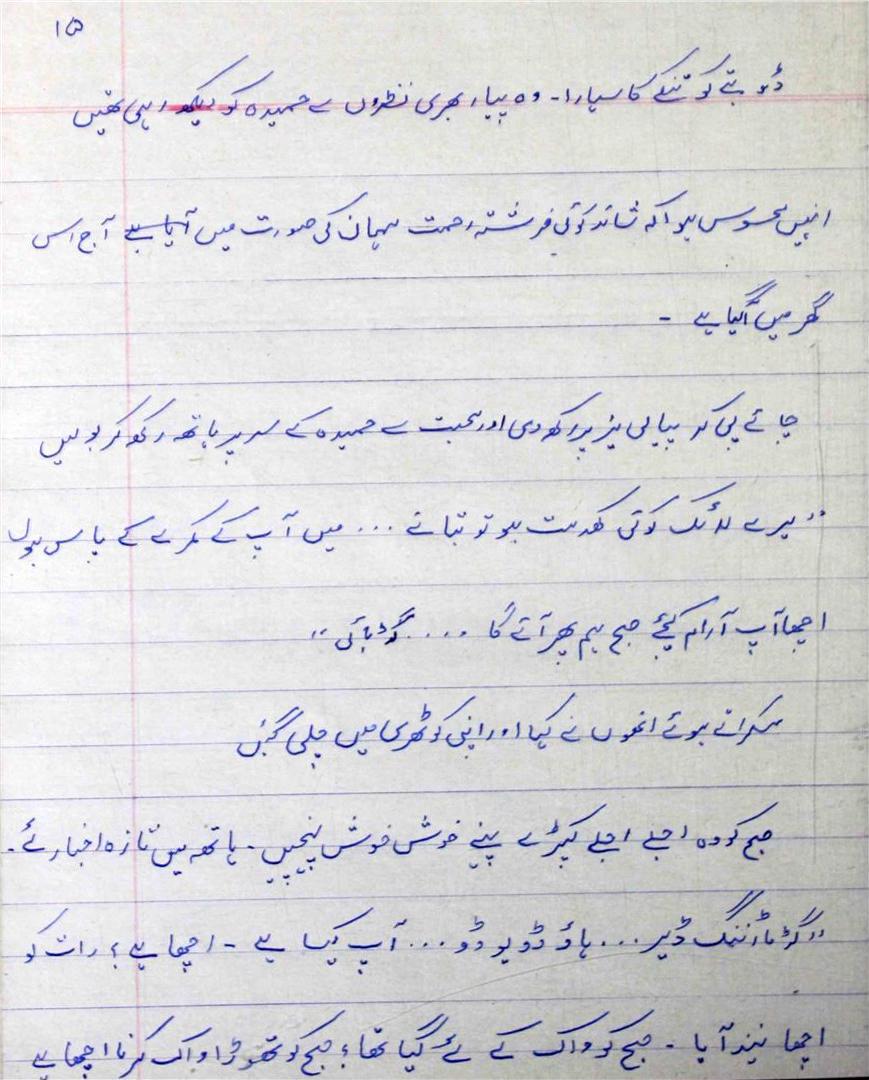 ۱۵
ڈوبتے کو تنکے کا سہارا۔ وہ پیار بھری نظروں سے حمیدہ کو دیکھ رہی تھیں
انہیں محسوس ہوا کہ شائد کوئی فرشتہ رحمت مہمان کی صورت میں آیا ہے آج اس
گھر میں آ گیا ہے ۔
چائے پی کر پیالی میز پر رکھ دی اور محبت سے حمیدہ کے سر پر ہاتھ رکھ کر بولیں
"میرے لائک کوئی کھدمت ہو تو بتانے ... میں آپ کے کمرے کے پاس ہوں
اچھا آپ آرام کیجئے صبح ہم پھر آئے گا .... گڈ بائی"
مسکراتے ہوئے انھوں نے کہا اور اپنی کوٹھری میں چلی گئیں
صبح کو وہ اجلے اجلے کپڑے پہنے خوش خوش پہنچیں۔ ہاتھ میں تازہ اخبار لئے۔
"گڈ مارننگ ڈیر ... ہاؤ ڈو یو ڈو ... آپ کیسا ہے ۔ اچھا ہے؟ رات کو
اچھا نیند آیا ۔ صبح کو واک کے لئے گیا تھا؟ صبح کو تھوڑا واک کرنا اچھا ہے